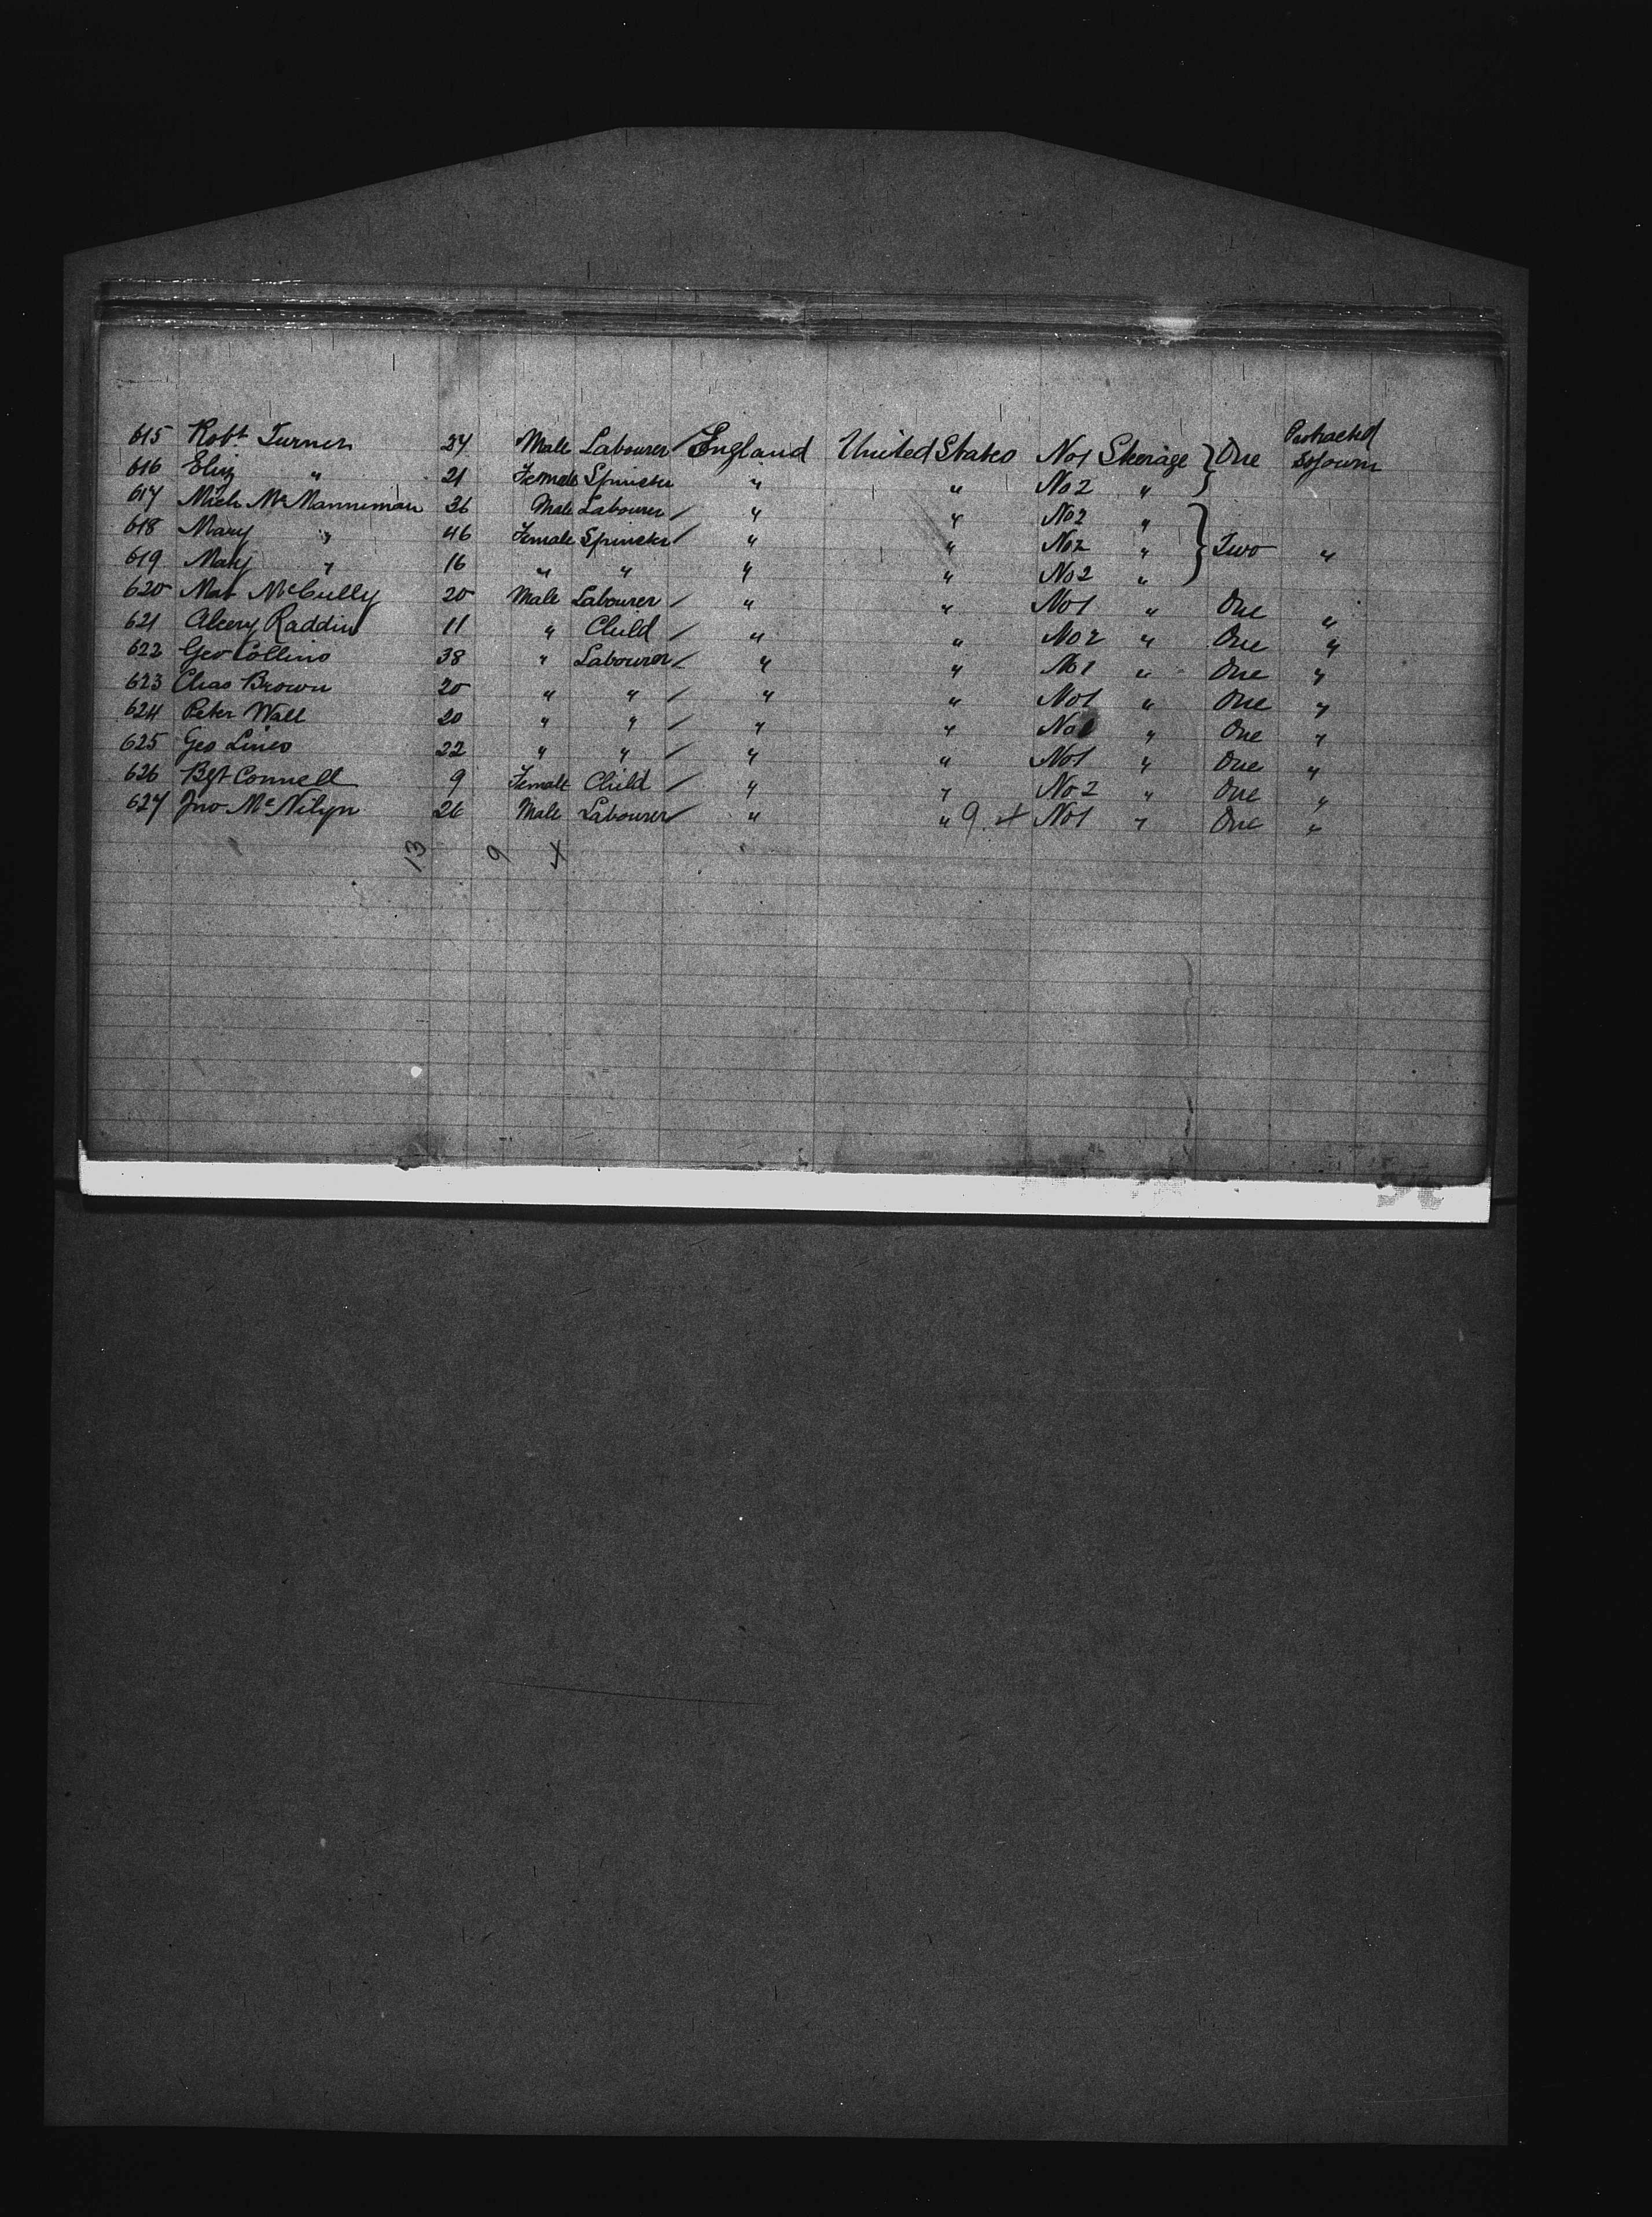 615 Robt Turner 24 Male Labourer / England United States No1 Steerage } One Protracted Sojourn
616 Eliz " 21 Female Spinster " " No 2 "
617 Mich McManniman 36 Male Labourer / " " No2 "
618 Mary " 46 Female Spinster / " " No2 " } Two "
619 Mary " 16 " " " " No2 "
620 Mat McCully 20 Male Labourer / " " No1 " One "
621 Raddin 11 " Child / " " No 2 " One "
622 Geo Collins 38 " Labourer / " " No1 " One "
623 Chas Brown 20 " " / " " No1 " One "
624 Peter Wall 20 " " / " " No " One "
625 Geo Lines 22 " " / " " No1 " One "
626 Bgt Connell 9 Female Child / " " No 2 " One "
627 Jno 26 Male Labourer / " " 9 No1 " One "
13 9 X